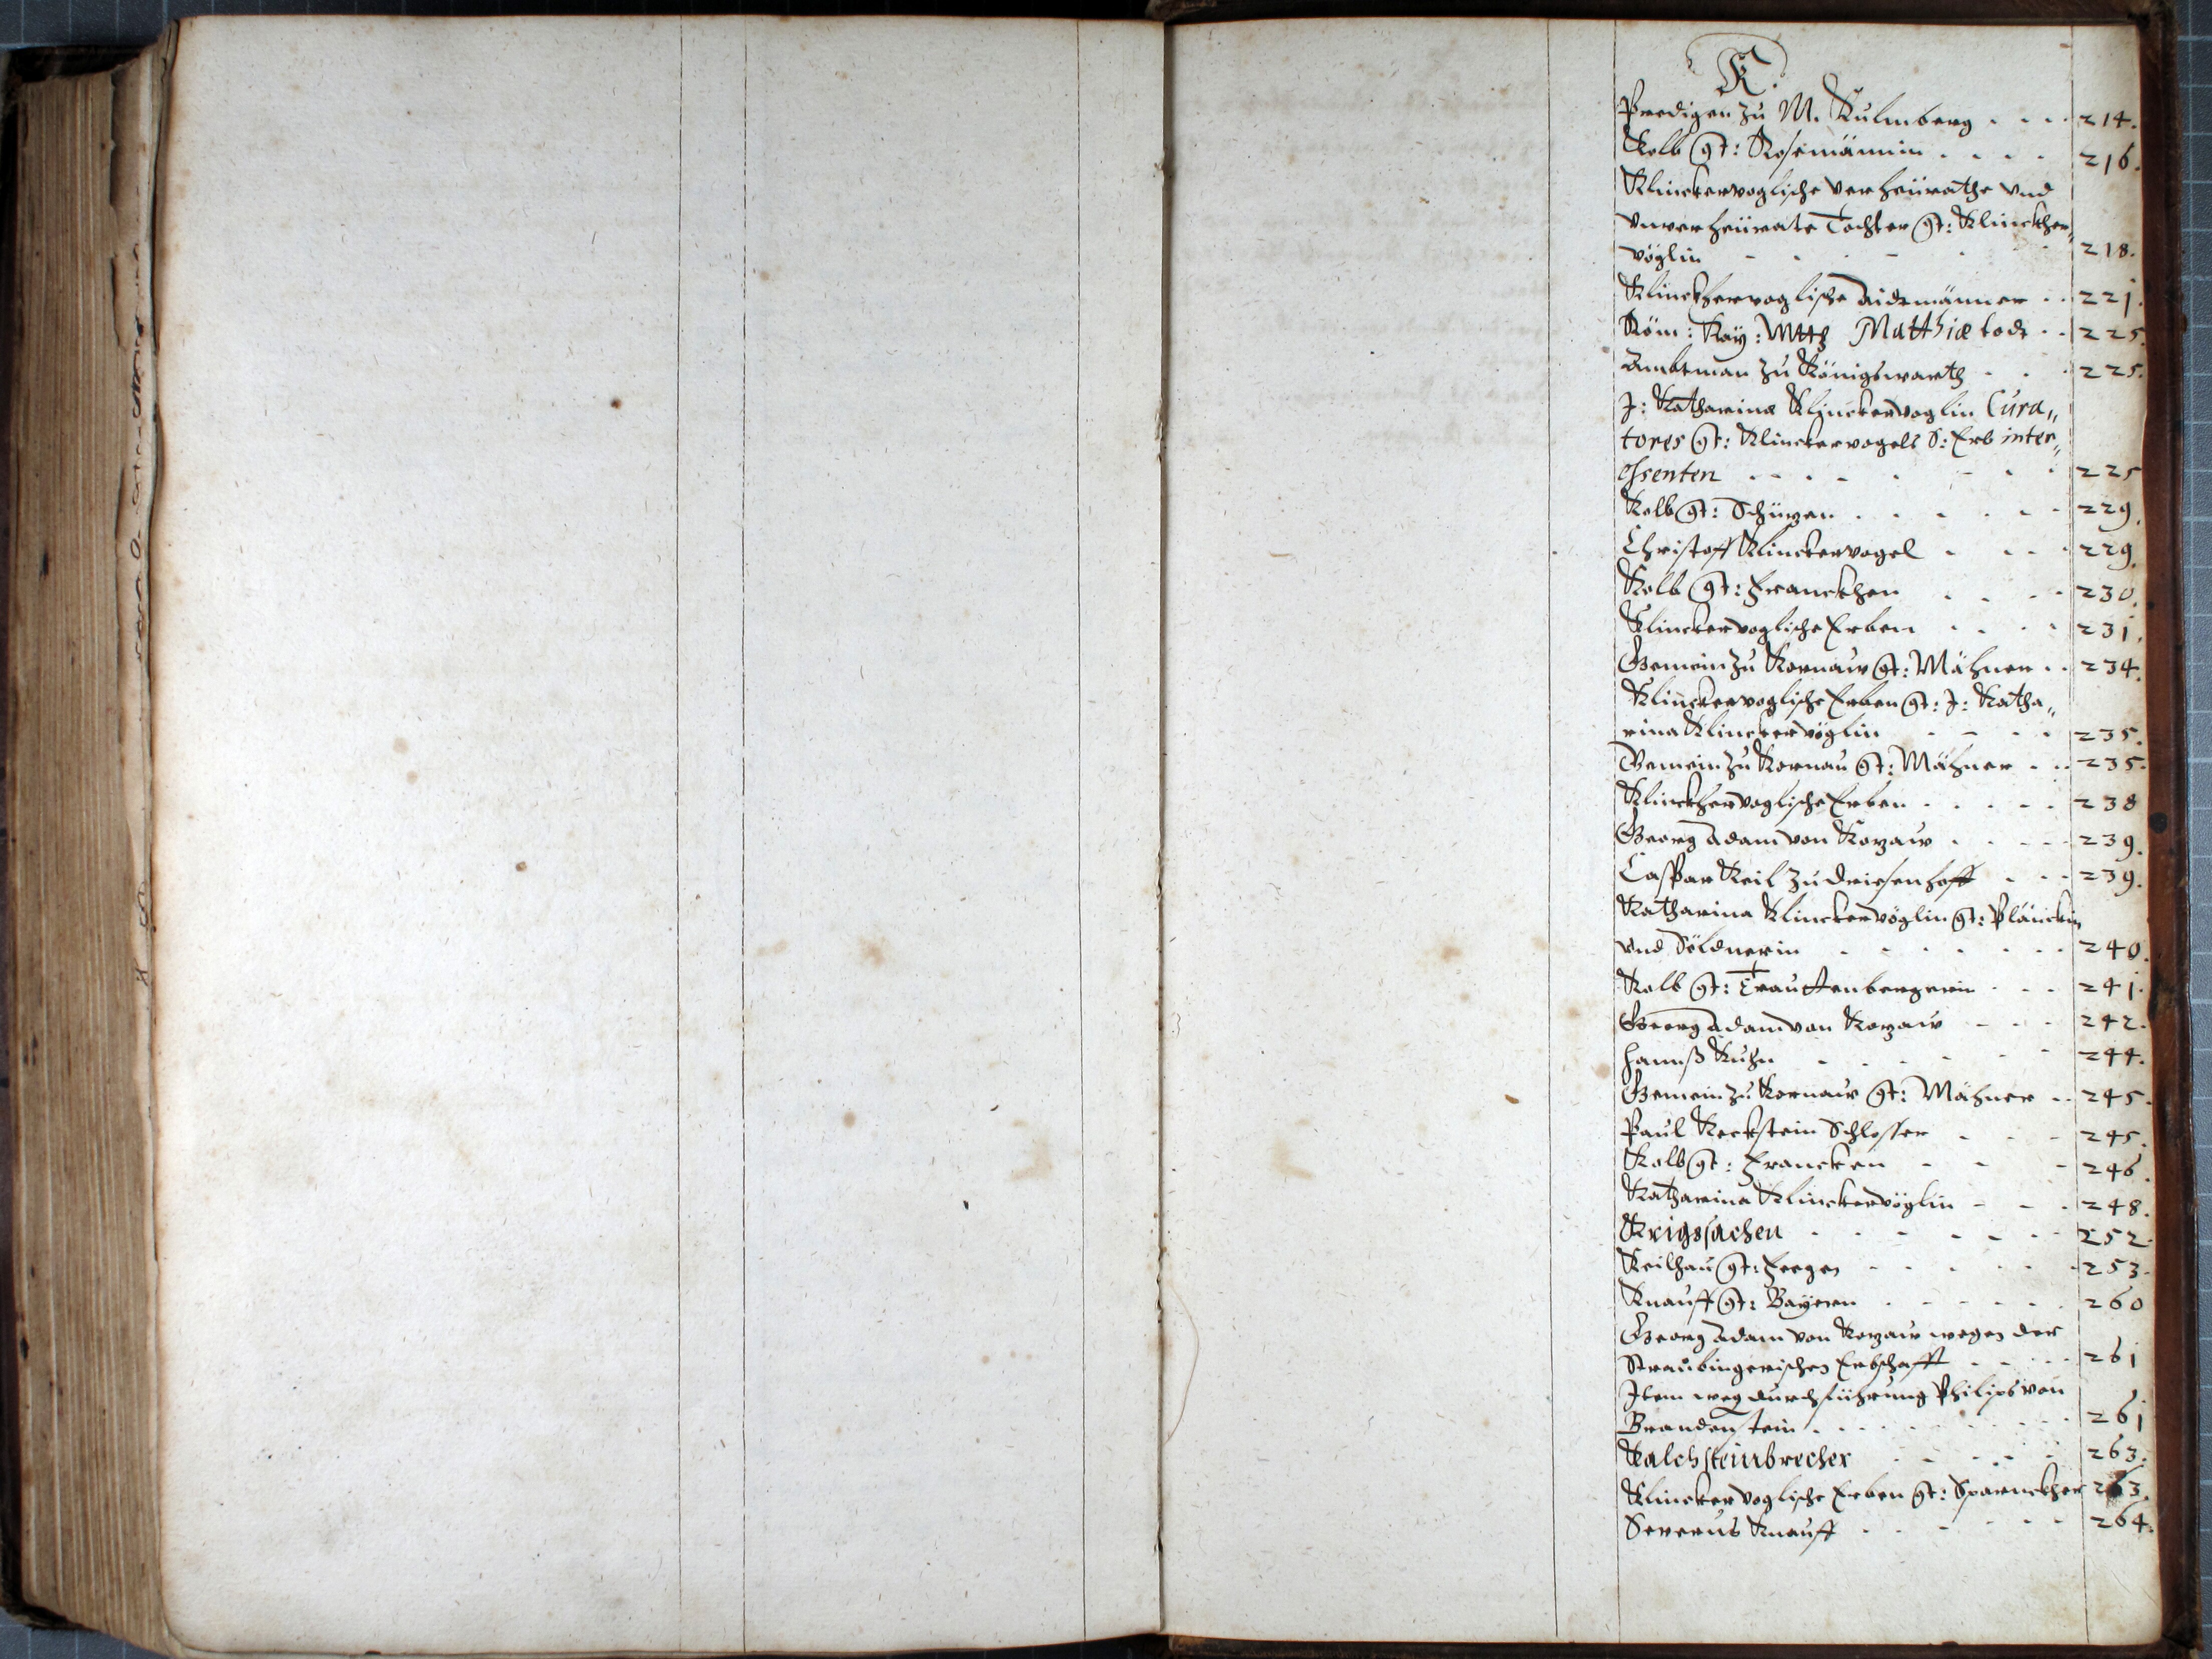 K.
Predigen zu M. Kulmberg . . . . 214.
Kolb gt: Rosemännin . . . . 216.
Klinckervoglische Verheürathe vnd
vnverheürate Tochter gt: Klinckher„
vöglin - - - - - 218.
Klinckhervoglische Aidemänner . . 221.
Röm: Kay: Mtt Matthiæ todt . . 225.
Ambtman zu Königswarth . . . 225.
J: Katharinæ Klinckervoglin Cura„
tores gt: Klinckervogels S: Erb inter„
essenten . . . . . - . . 225
Kolb gt: Schürzen . . . . . . 229.
Christoff Klinckervogel . . . . 229.
Kolb gt: Franckhen . . . . 230.
Klinckervoglische Erben . . . . 231.
Gemein zu Kornaw gt: Mähner . . 234.
Klinckervoglische Erben gt: J: Katha„
rina Klinckervöglin - - - . 235.
Gemein zu Kornau gt: Mähner . . . 235.
Klinckhervoglische Erben . . . . . 238
Georg Adam von Kozaw . . . . . 239.
Caspar Keil zu Driesenhoff . . . 239.
Katharina Klinckervöglin gt: Plänckin
vnd Söldnerin . - - - - . . 240.
Kolb gt: Trauttenbergerin . . . 241.
Georg Adam von Kozaw - . . . 242.
Hannß Kuhn - . . . - . 244.
Gemein zu Kornaw gt: Mähner . . 245.
Paul Keckstein Schlosser . . . 245.
Kolb gt: Francken - - - 246.
Katharina Klinckervöglin - - . 248.
Krigssachen . . - - - . . 252.
Keilhau gt: . . . . . 253.
Knauff gt: Bayern . . . . . . 260
Georg Adam von Kozaw wegen der
Straubingerischen Erbschafft . . . . 261
Item weg durchführung Philips von
Brandenstein . . . . . . . . 261
Kalchsteinbrecher . . . . . 263.
Klinckervoglische Erben gt: Sparneckher 263.
Severus Knauff . . . . . . . 264.